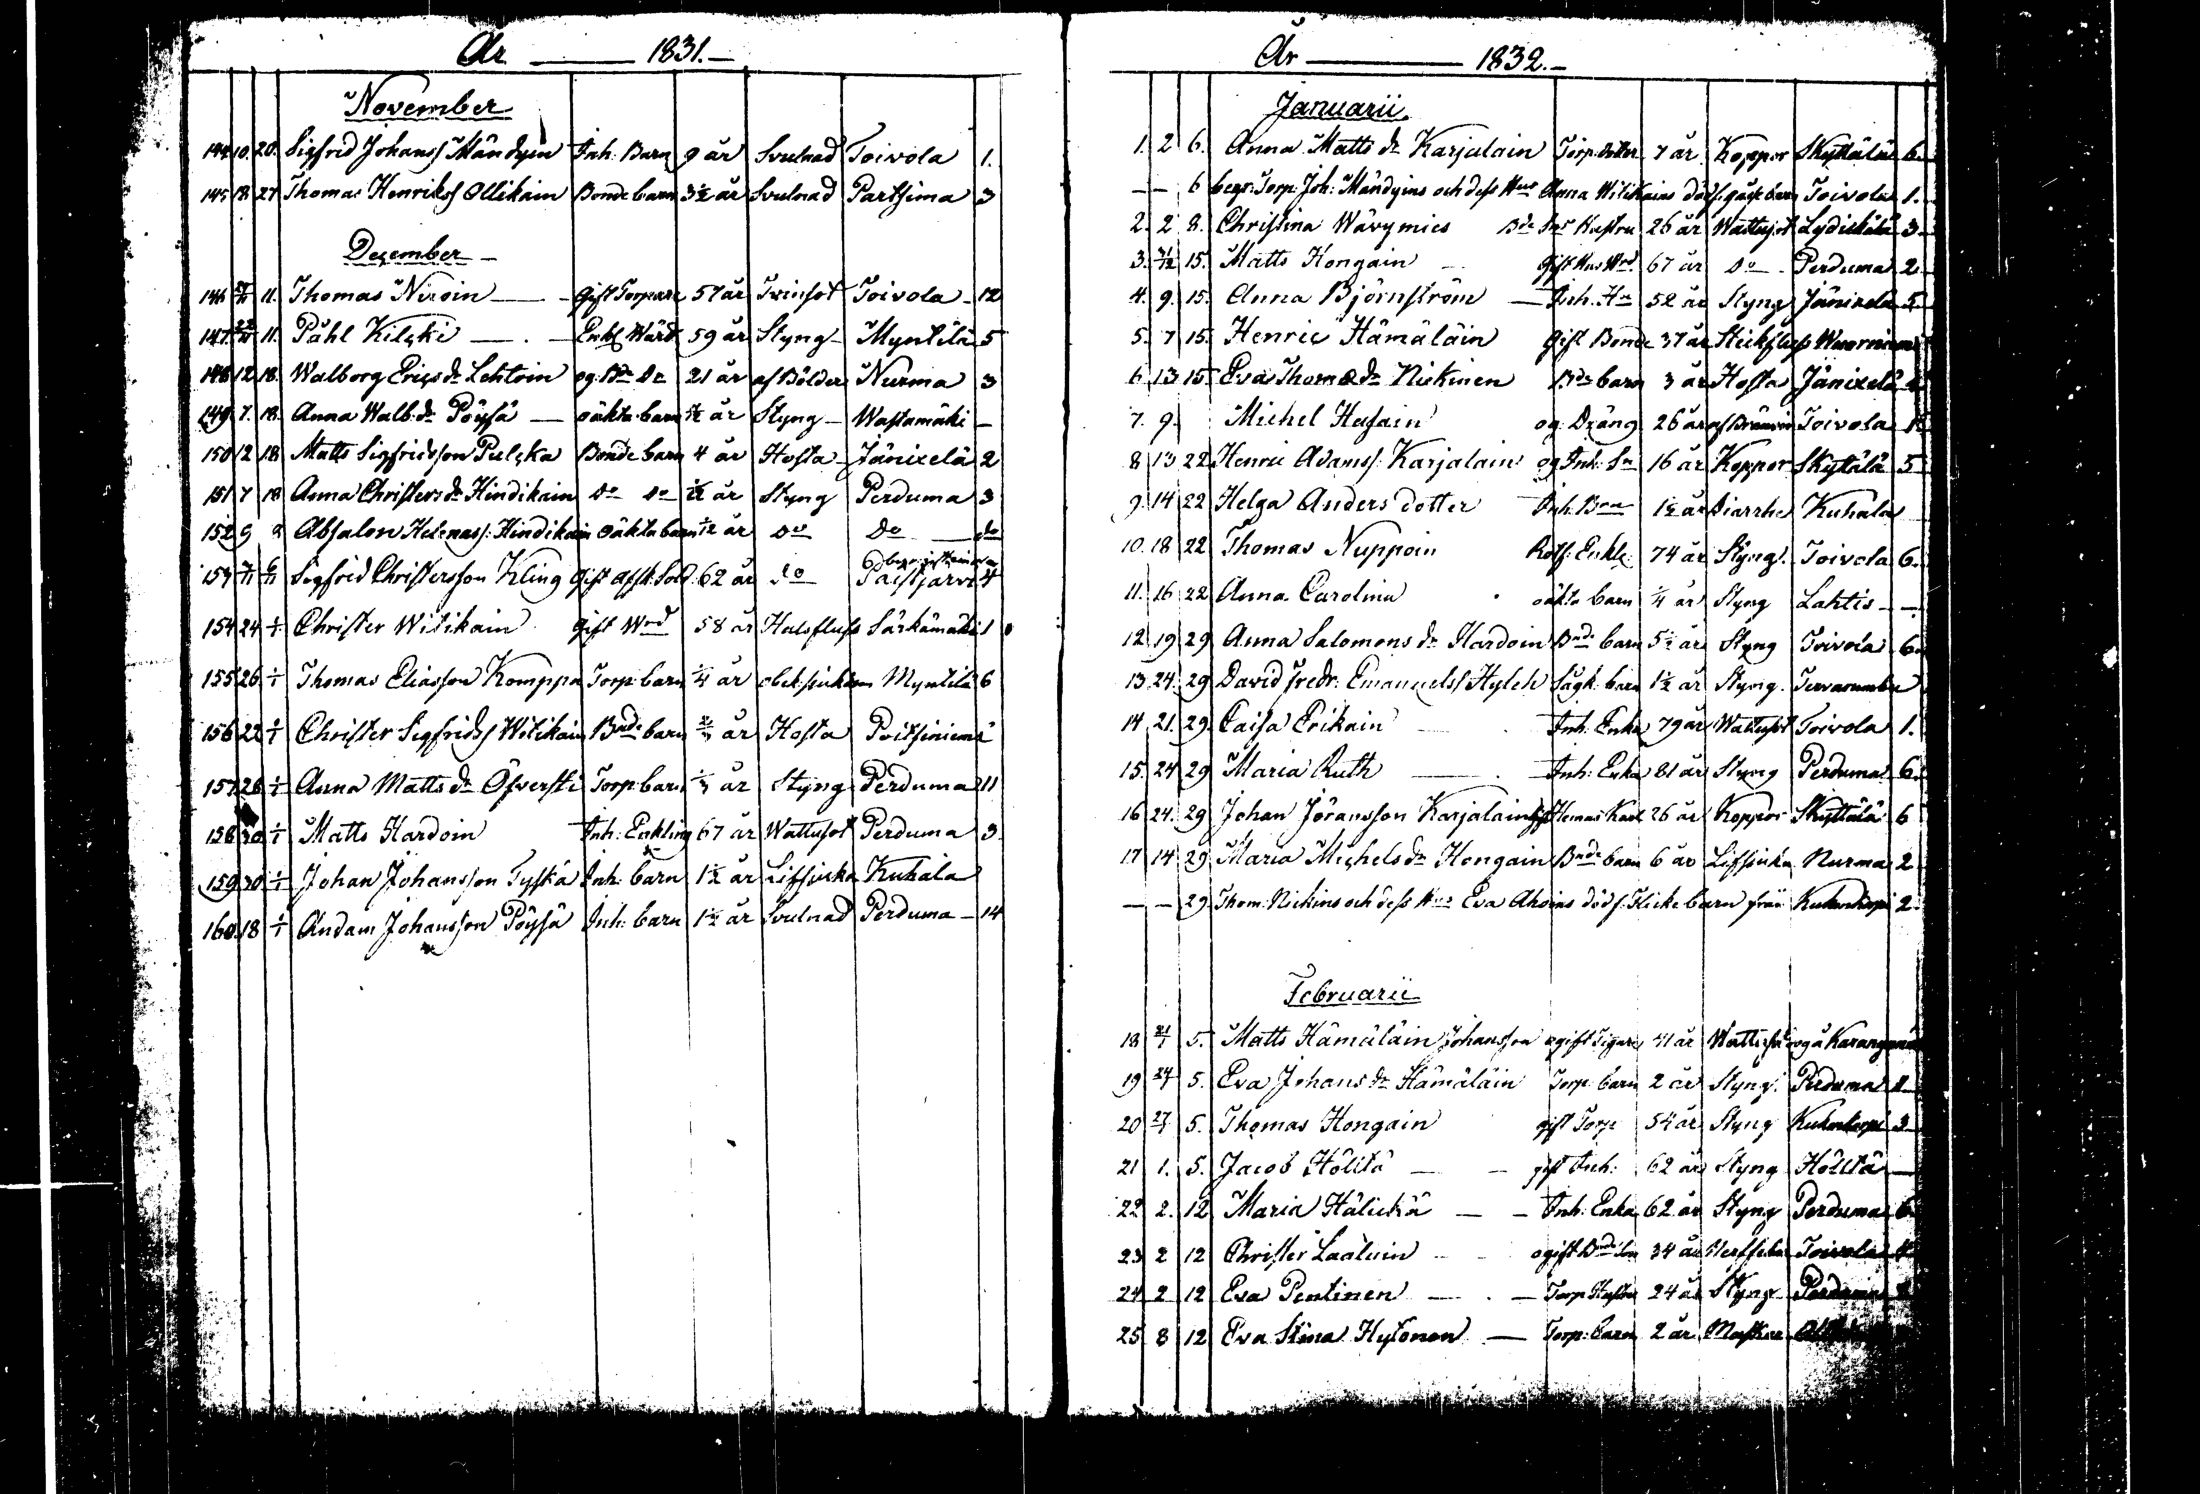 År 1831.
November
144 10. 20. Sigfrid Johanss Mändyin Inh: Barn 9 år Svulnad Toivola 1.
145 18 27 Thomas Henrikss Ollikain Bonde barn 3½ år Svulnad Partsima 3
December
146 11. Thomas Niroin gift Torpare 57 år Tvinsot Toivola 12
147 11. Påhl Kilski Enkl Wärd 59 år Styng Myntilä 5
148 12 18. Walborg Erics dr Lehtoin og: Bde Dr 21 år af Bölder Nurma 3
149 7. 18. Anna Walb: dr Pöysä oäkta barn år Styng Wastamäki
150 12 18 Matts Sigfridsson Pulska Bonde barn 4 år Hosta Jänixelä 2
151 7 18 Anna Christers dr Hindikain do do ½ år Styng Perduma 3
152 9 Absalon Helenas: Hindikain oäkta barn år do do do
153 Sigfrid Christersson Kling Gift afsk: Sold: 62 år do Paistjärvi 4
154 24 1/1 Christer Witikain Gift Wrd 58 år Halsfluss Särkämäki 1
155 26 1/1 Thomas Eliasson Komppa Torp: barn ¼ år obek: siukdom Myntilä 6
156 22 1/1 Christer Sigfrids Witikain Bnde barn år Hosta Poitsiniemi
157 26 1/1 Anna Matts dr Öfverski Torp: barn år Styng Perduma 11
158 30 1/1 Matts Hardoin Inh: Enkling 67 år Wattusot Perduma 3.
159 30 1/1 Johan Johansson Tyskä Inh: barn 1½ år Lifsiuka Kuhala
160. 18 1/1 Andam Johansson Pöysä Inh: barn 1½ år Svulnad Perduma 14
År 1832.
Januarii
1. 2 6. Anna Matts dr Karjalain Torp: dotter 7 år Koppor Skyttälä 6.
6 begr: Torp: Joh: Mändyins och dess Hus Anna Witikains döds: gåsse barn Toivola 1.
2. 2 8. Christina Wäyymies Bde Hustru 26 år Wattusot 3
3. 15. Matts Hongain Gift Hus Wrd 67 år do Perduma 2
4. 9. 15. Anna Björnström Inh. 52 år Styng Jänixelä 5
5. 7 15. Henric Hämäläin Gift Bonde 37 år Stickfluss
6 13 15 Eva Thomæ dr Nickinen Bde barn 3 år Hosta Jänixelä
7. 9. Michel Hasain og: Dräng 26 år af Bränvin Toivola
8 13 22 Henric Adams: Karjalain og Inh: Sn 16 år Koppor Skytälä 5
9. 14 22 Helga Anders dotter Inh: 1½ år Diarrhe Kuhala
10. 18 22 Thomas Nuppoin Enkl: 74 år Styng. Toivola 6.
11. 16 22 Anna Carolina oäkta barn ¼ år Styng Lahtis
12 19 29 Anna Salomons dr Hardoin Bnde barn 5½ år Styng Toivola 6.
13 24. 29 David Fredr: Emanuelss Hyleh Sågk: barn 1½ år Styng.
14 21. 29. Caisa Erikain Inh: Enka 79 år Wattusot Toivola 1.
15. 24 29 Maria Ruth Inh: Enka 81 år Styng Perduma 6.
16 24. 29 Johan Jöransson Karjalain gift Hemas Karl 26 år Koppor Skyttälä 6
17 14 29 Maria Michels dr Hongain Bnde barn 6 år Lifsiuka Nurma 2
29 Thom: Nickins och dess Hus Eva Ahoins döds: Flicke barn från 2.
Februarii
18 21/1 5. Matts Hämäläin Johansson ogift 41 år
19 24/1 5. Eva Johans dr Hämäläin Torp: barn 2 år Styng. Perduma
20 27/1 5. Thomas Hongain gift Torp 54 år Styng 3
21 1. 5. Jacob Hölltä gift Inh: 62 år Styng Hölltä
22 2. 12 Maria Hälickä Inh: Enka 62 år Styng Perduma 6.
23 2 12 Christer Laaluin ogift Bnde Son 34 år Toivola
24 2 12 Eva Pentinen Torp: Hustru 24 år Styng Perduma
25 8 12 Eva Stina Hytönen Torp: Barn 2 år Maskar